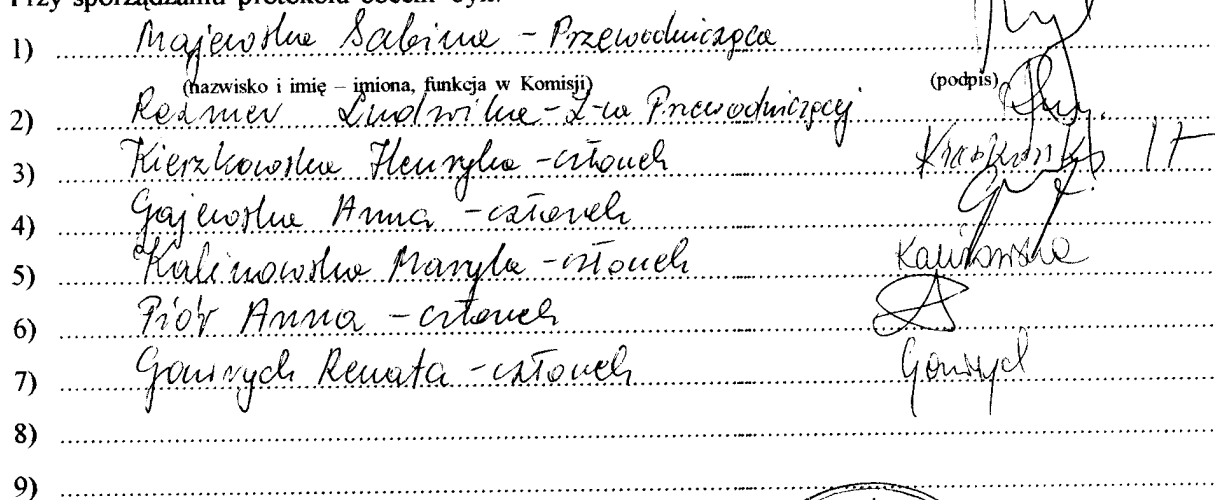 Przy sporządzaniu protokołu obecni byli:
1) Majewska Sabina - Przewodnicząca
(nazwisko i imię – imiona, funkcja w Komisji) (podpis)
2) Rezmer Ludwika - Z-ca Przewodniczącej
3) Kierzkowska Henryka - członek
4) Gajewska Anna - członek
5) Kalinowska Maryla - członek Kalinowska
6) Piór Anna - członek
7) Renata - członek
8)
9)